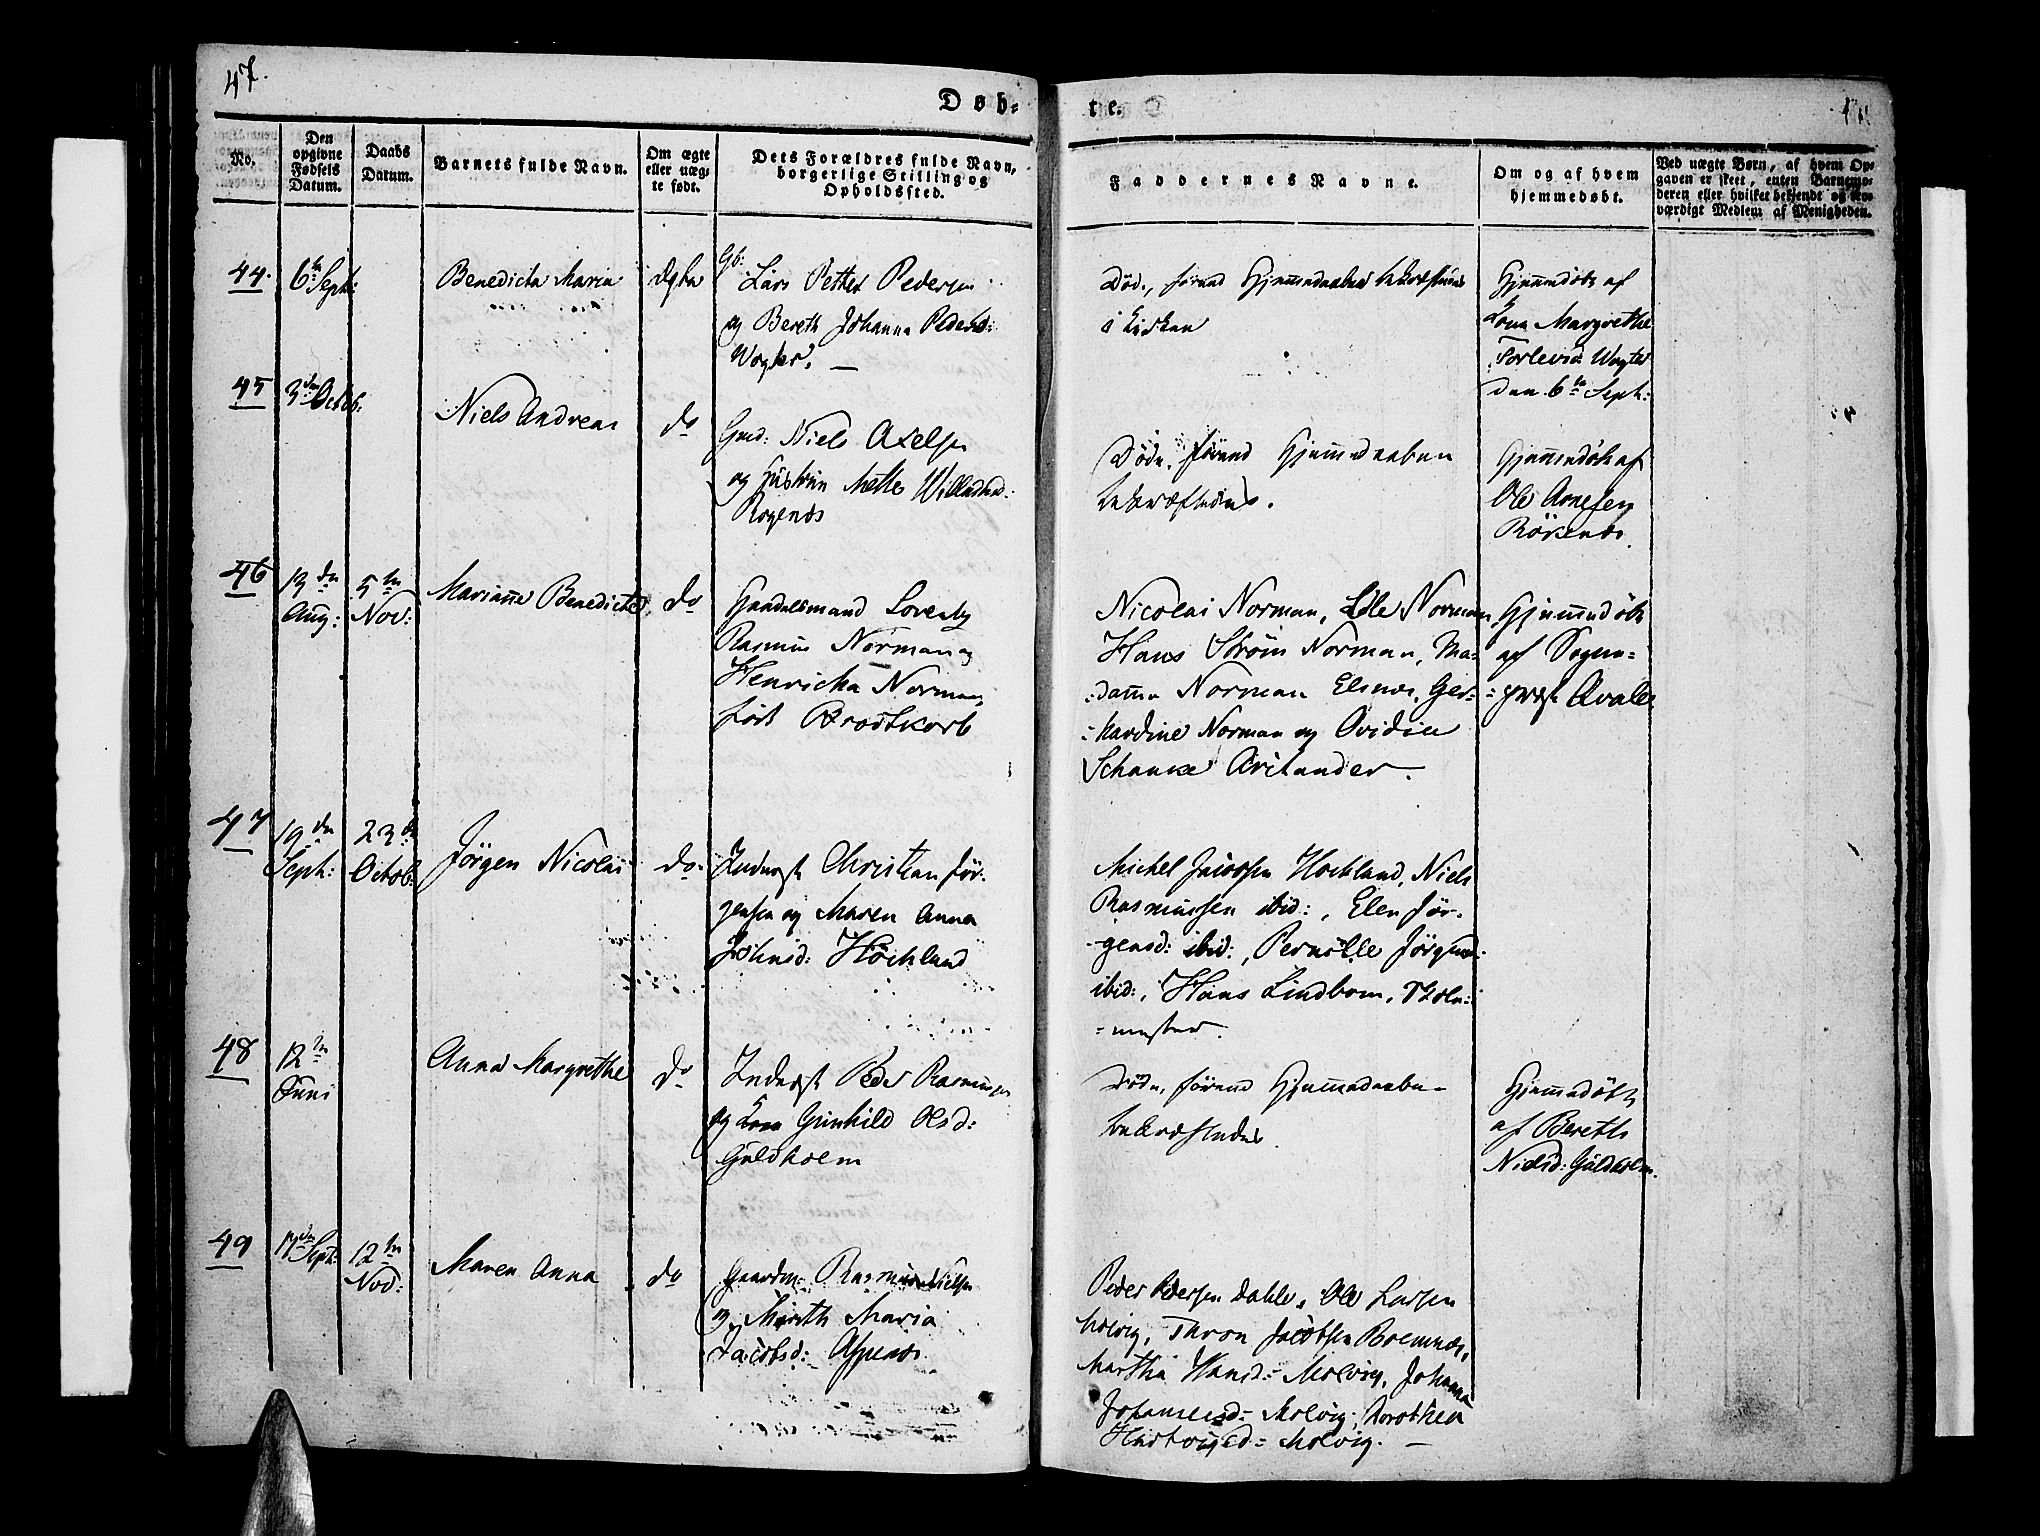 47.
Døb-
te.
No.
Den opgivne Fødsels Datum.
Daabs Datum.
Barnets fulde Navn.
Om ægte eller uægte født.
Dets Forældres fulde Navn, borgerlige Stilling og Opholdssted.
Faddernes Navne.
Om og af hvem hjemmedøbt.
Ved uægte Børn, af hvem Opgaven er skeet, enten Barnemoderen eller hvilket bekjendt og troværdigt Medlem af Menigheden.
44.
6te Sept:
Benedicta Maria
ægte
Gb:
Lars Petter Pedersen
og Bereth Johanna Pedersd:
Død,førend Hjemmedaaben bekræftedes
i Kirken
Hjemmedøbt af
Lona Margrethe
Torlevsd: Vogter
den 6te Sept:
45
3die Octob:
Niels Andreas
do
Gmd: Niels Axelsen
og Hustrue Mette Willadsd:
Døde, førend Hjemmedaaben
bekræftedes.
Hjemmedøbt af
Ole Arnesen
Rökenes
46
13de
Aug:
5te
Nov:
Marianne Benedicte
do
Handelsmand Lorentz
Rasmus Norman og
Henricha Norman,
født Brodtkorb
Nicolai Norman, Lille Norman
Hans Strøm Norman, Ma-
dame Norman Elsnes, Ger-
hardine Norman og Ovidia
Schanke Arctander.
Hjemmedöbt
af Sogne-
præst Qvale
47
19de
Sept:
23de
Octob:
Jörgen Nicolai
do
Inderst Christian Jör-
gensen og Maren Anna
Johnsd: Höckland
Michel Jacobsen Hockland, Niels
Rasmussen ibid:, Elen Jör-
gensd: ibid:, Pernille Jörgensd:
ibid:, Hans Lindbom, Skole-
mester.
48
12te
Juni
Anna Margrethe
do
Inderst Peder Rasmussen
og Gunhild Olsd:
Guldholm
Döde, förend Hjemmedaaben
bekræftedes.
Hjemmedöbt
af Bereth
Nielsd: Guldholm.
49
17de Sept:
12te
Nov:
Maren Anna
do
Gaardm: Rasmus Nielsen
og Marith Maria
Jacobsd: Aspenes
Peder Pedersen Dahle, Ole Larsen
Molvig, Thron Jacobsen Bremnes,
Martha Hansd: Molvig, Johanna
Johannesd: Molvig, Dorothea
Hartvigsd: Molvig.